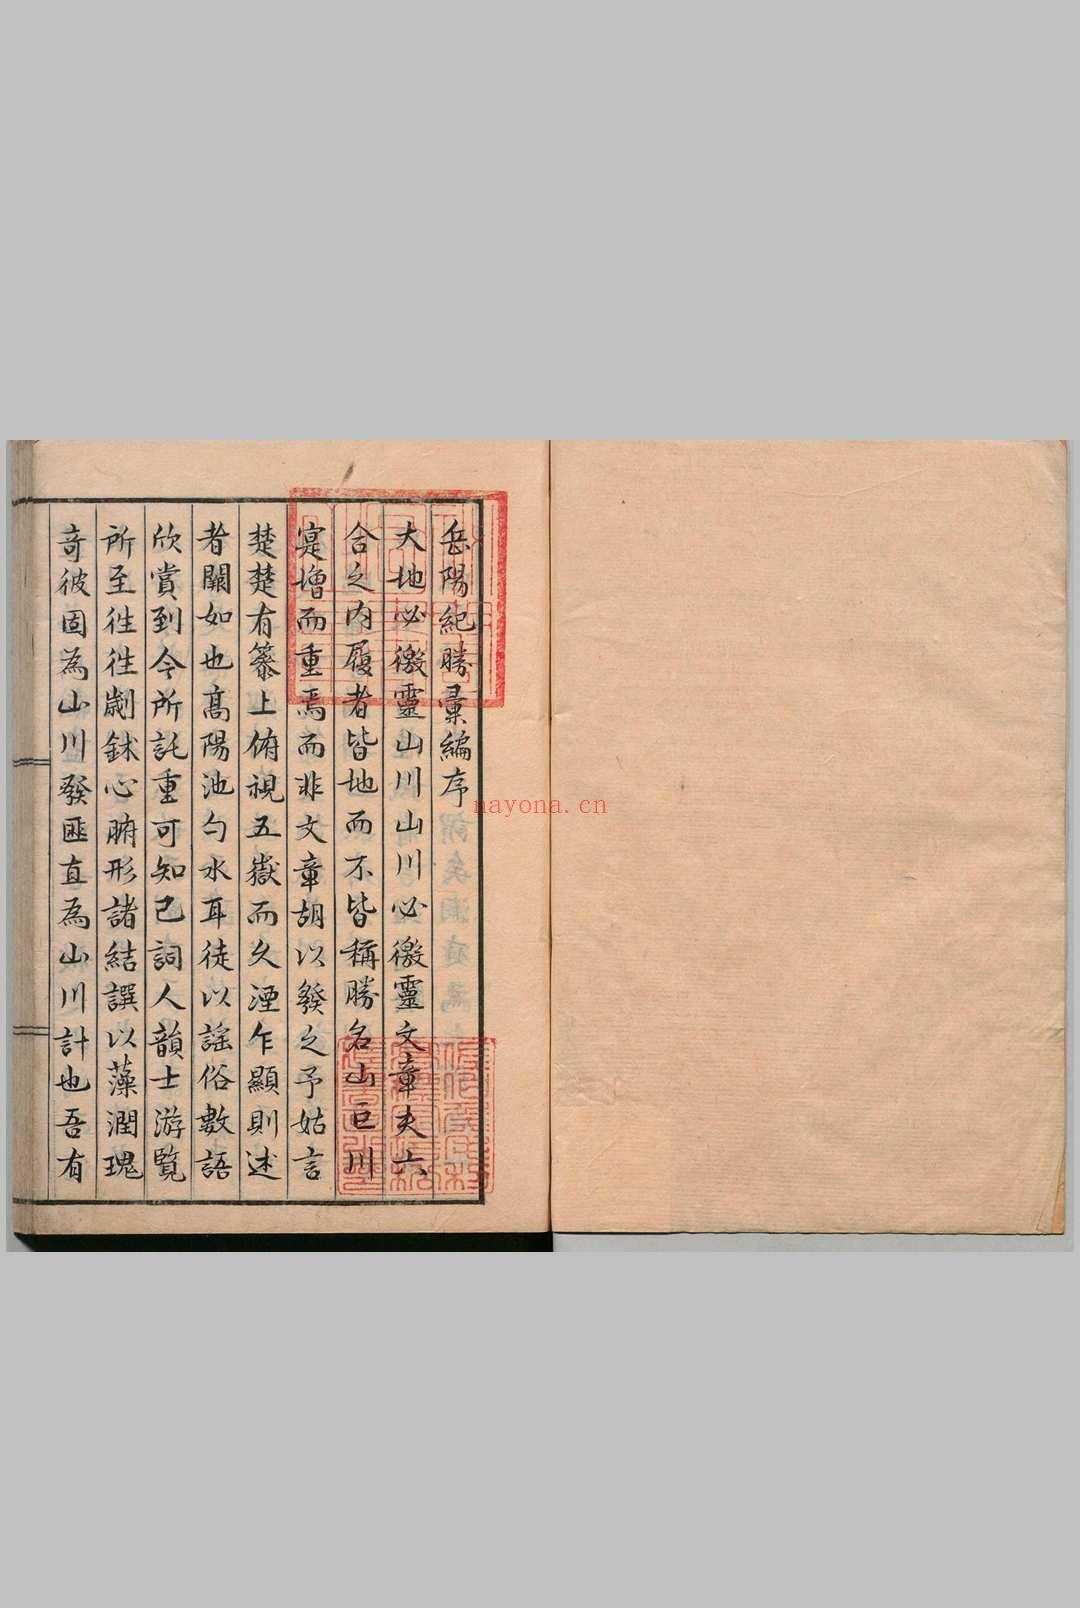 岳陽紀勝彙編序
大地必徼靈山川山川必徼靈文章夫六
合之内履者皆地而不皆稱勝名山巨川
寔增而重焉而非文章胡以發之予姑言
楚楚有篸上俯視五嶽而久湮乍顯則述
者闕如也高陽池勺水耳徒以謡俗數語
欣賞到今所託重可知已詞人韻士游覧
所至徃徃劌鉥心腑形諸結譔以藻潤瑰
竒彼固為山川發匪直為山川計也吾有
nayona.cn